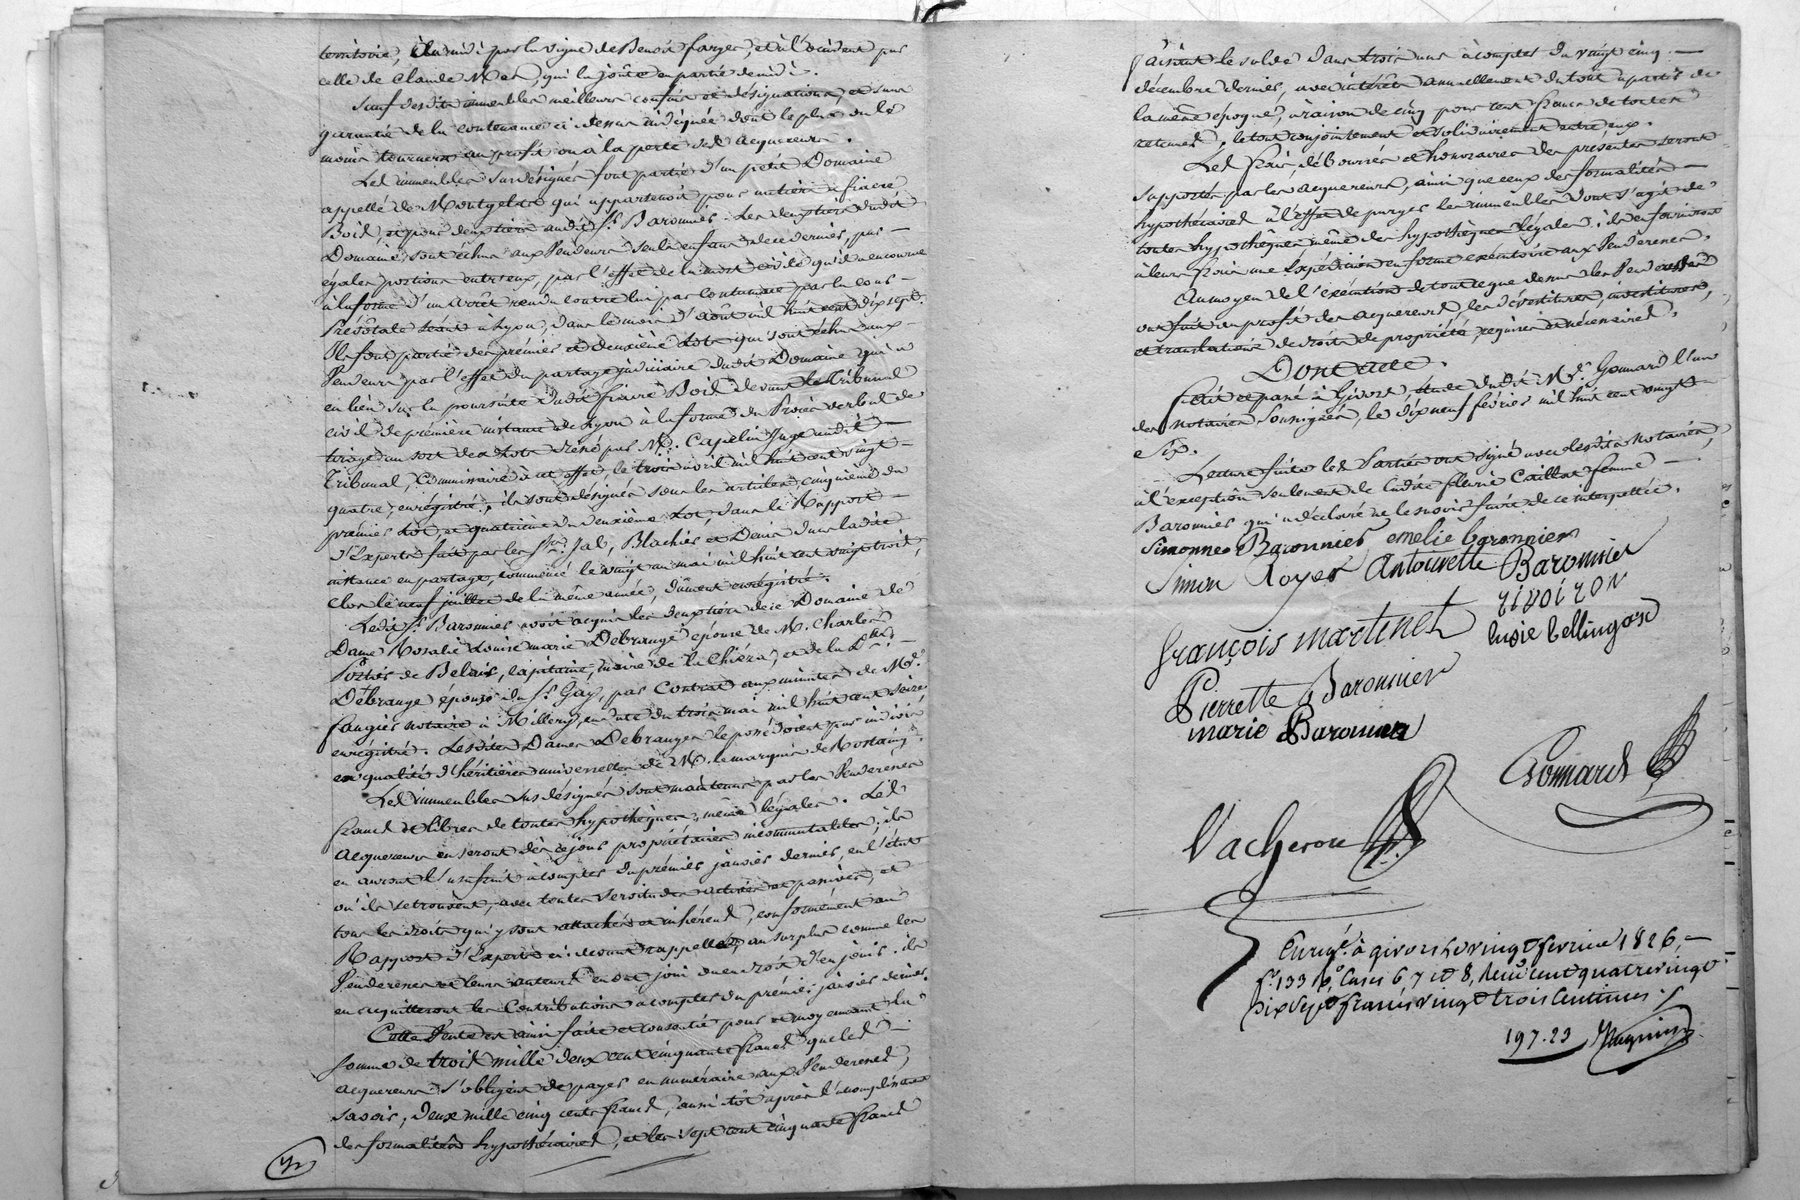 territoire, au midi par la vigne de Benoit farges, et à l'occident par
celle de Claude Mer, qui la joûte en partie de midi.
Sauf desdits immeubles meilleurs confins et désignations, et sans
garantie de la contenance ci dessus indiquée dont le plus ou le
moins tournera au profit ou à la perte des acquereurs.
Les immeubles susdésignés font partie d'un petit Domaine
appellé de Montgelas qui appartenoit pour un tiers à fiacre
Boil, et pour deux tiers audit Sr. Baronnier. Les deux tiers dudit
Domaine sont échus aux Vendeurs seuls enfans de ce dernier, par
égales portions entr'eux, par l'effet de la mort civile qu'il a encourue
à la forme d'un arrêt rendu contre lui par contumace par la cour
Prévôtale séant à Lyon, dans le mois d'août mil huit cent dix sept.
Ils font partie des premier et deuxième lots qui sont échus aux
Vendeurs par l'effet du partage judiciaire dudit Domaine qui a
eu lieu sur la poursuite dudit fiacre Boil devant le Tribunal
civil de première instance de Lyon à la forme du Procès verbal de
tirage au sort des lots dréssé par Mr. Capelin Juge audit
Tribunal, Commissaire à cet effet le trois avril mil huit cent vingt
quatre, enrégistré; ils sont désignés sous les articles cinquième du
premier lot, et quatrième du deuxième lot, dans le Rapport
d'Experts fait par les Srs. Jal, Blachier et Denis dans ladite
instance en partage, commencé le vingt un mai mil huit cent vingt trois,
clos le neuf juillet de la même année, dûment enregistré.
Ledit Sr. Baronnier avoit acquis les deux tiers de ce Domaine de
Dame Rosalie Louise marie Debrange épouse de M. Charles
Portier de Belair, capitaine, maire de la Chiéra, et de la Dlle.
Debrange épouse du Sr. Gay, par Contrat aux minutes de Me.
faugier notaire à Millery, en date du trois mai mil huit cent seize,
enrégistré. Lesdites Dames Debranges le possédoient par indivis
en qualité d'héritières universelles de M. le marquis de Rostaing.
Les immeubles susdésignés sont maintenus par les Venderesses
francs et libres de toutes hypothèques, même légales. Les
Acquereurs en seront dès ce jour propriétaires incommutables; ils
en auront l'usufruit à compter du premier janvier dernier, en l'état
où ils se trouvent, avec toutes servitudes actives et passives, et
tous les droits qui y sont attachés et inhérens, conformément au
Rapport d'Experts ci devant rappellé, au surplus comme les
Venderesses et leurs auteurs en ont joui ou eu droit d'en jouir. ils
en acquitteront les Contributions à compter du premier janvier dernier.
Cette Vente est ainsi faite et consentie pour et moyennant la
somme de trois mille deux cent cinquante francs que les
acquereurs s'obligent de payer en numéraire aux Venderesses,
savoir, deux mille cinq cents francs, aussitôt après l'accomplissement
des formalités hypothécaires, et les sept cent cinquante francs
faisant le solde dans trois ans à compter du vingt cinq
décembre dernier, avec intérêts annuellement du tout à partir de
la même époque, à raison de cinq pour cent francs de toutes
retenues; le tout conjointement et solidairement entr'eux.
Les frais, déboursés et honoraires des présentes seront
supportés par les acquereurs, ainsi que ceux des formalités
hypothécaires à l'effet de purger les immeubles dont s'agit de
toutes hypothèques même des hypothèques légales; ils en fourniront
à leurs frais une Expédition en forme exécutoire aux Venderesses.
Au moyen de l'exécution de tout ce que dessus les Venderesses
ont fait au profit des acquereurs les dévestitures, investitures,
et translations de droits de propriété, requises et nécessaires.
Dont acte.
Fait et passé à Givors, étude dudit Me. Gonnard l'un
des notaires soussignés, le dix neuf février mil huit cent vingt
six.
Lecture faite les Parties ont signé avec lesdits notaires,
à l'exception seulement de ladite fleurie Caillot femme
Baronnier qui a déclaré ne le savoir faire de ce interpellée.
Simonne Baronnier emelie baronnier
Simon Royer Antoinette Baronnier
rivoiron
françois martinet lusie bellingard
Pierrette Baronnier
marie Baronnier
Gonnard
Vacheron
Enregé. à givors le vingt fevrier 1826,
fo. 133 Ro. Cases 6, 7 et 8, reçu cent quatrevingt
dix sept francs vingt trois centimes
197.23